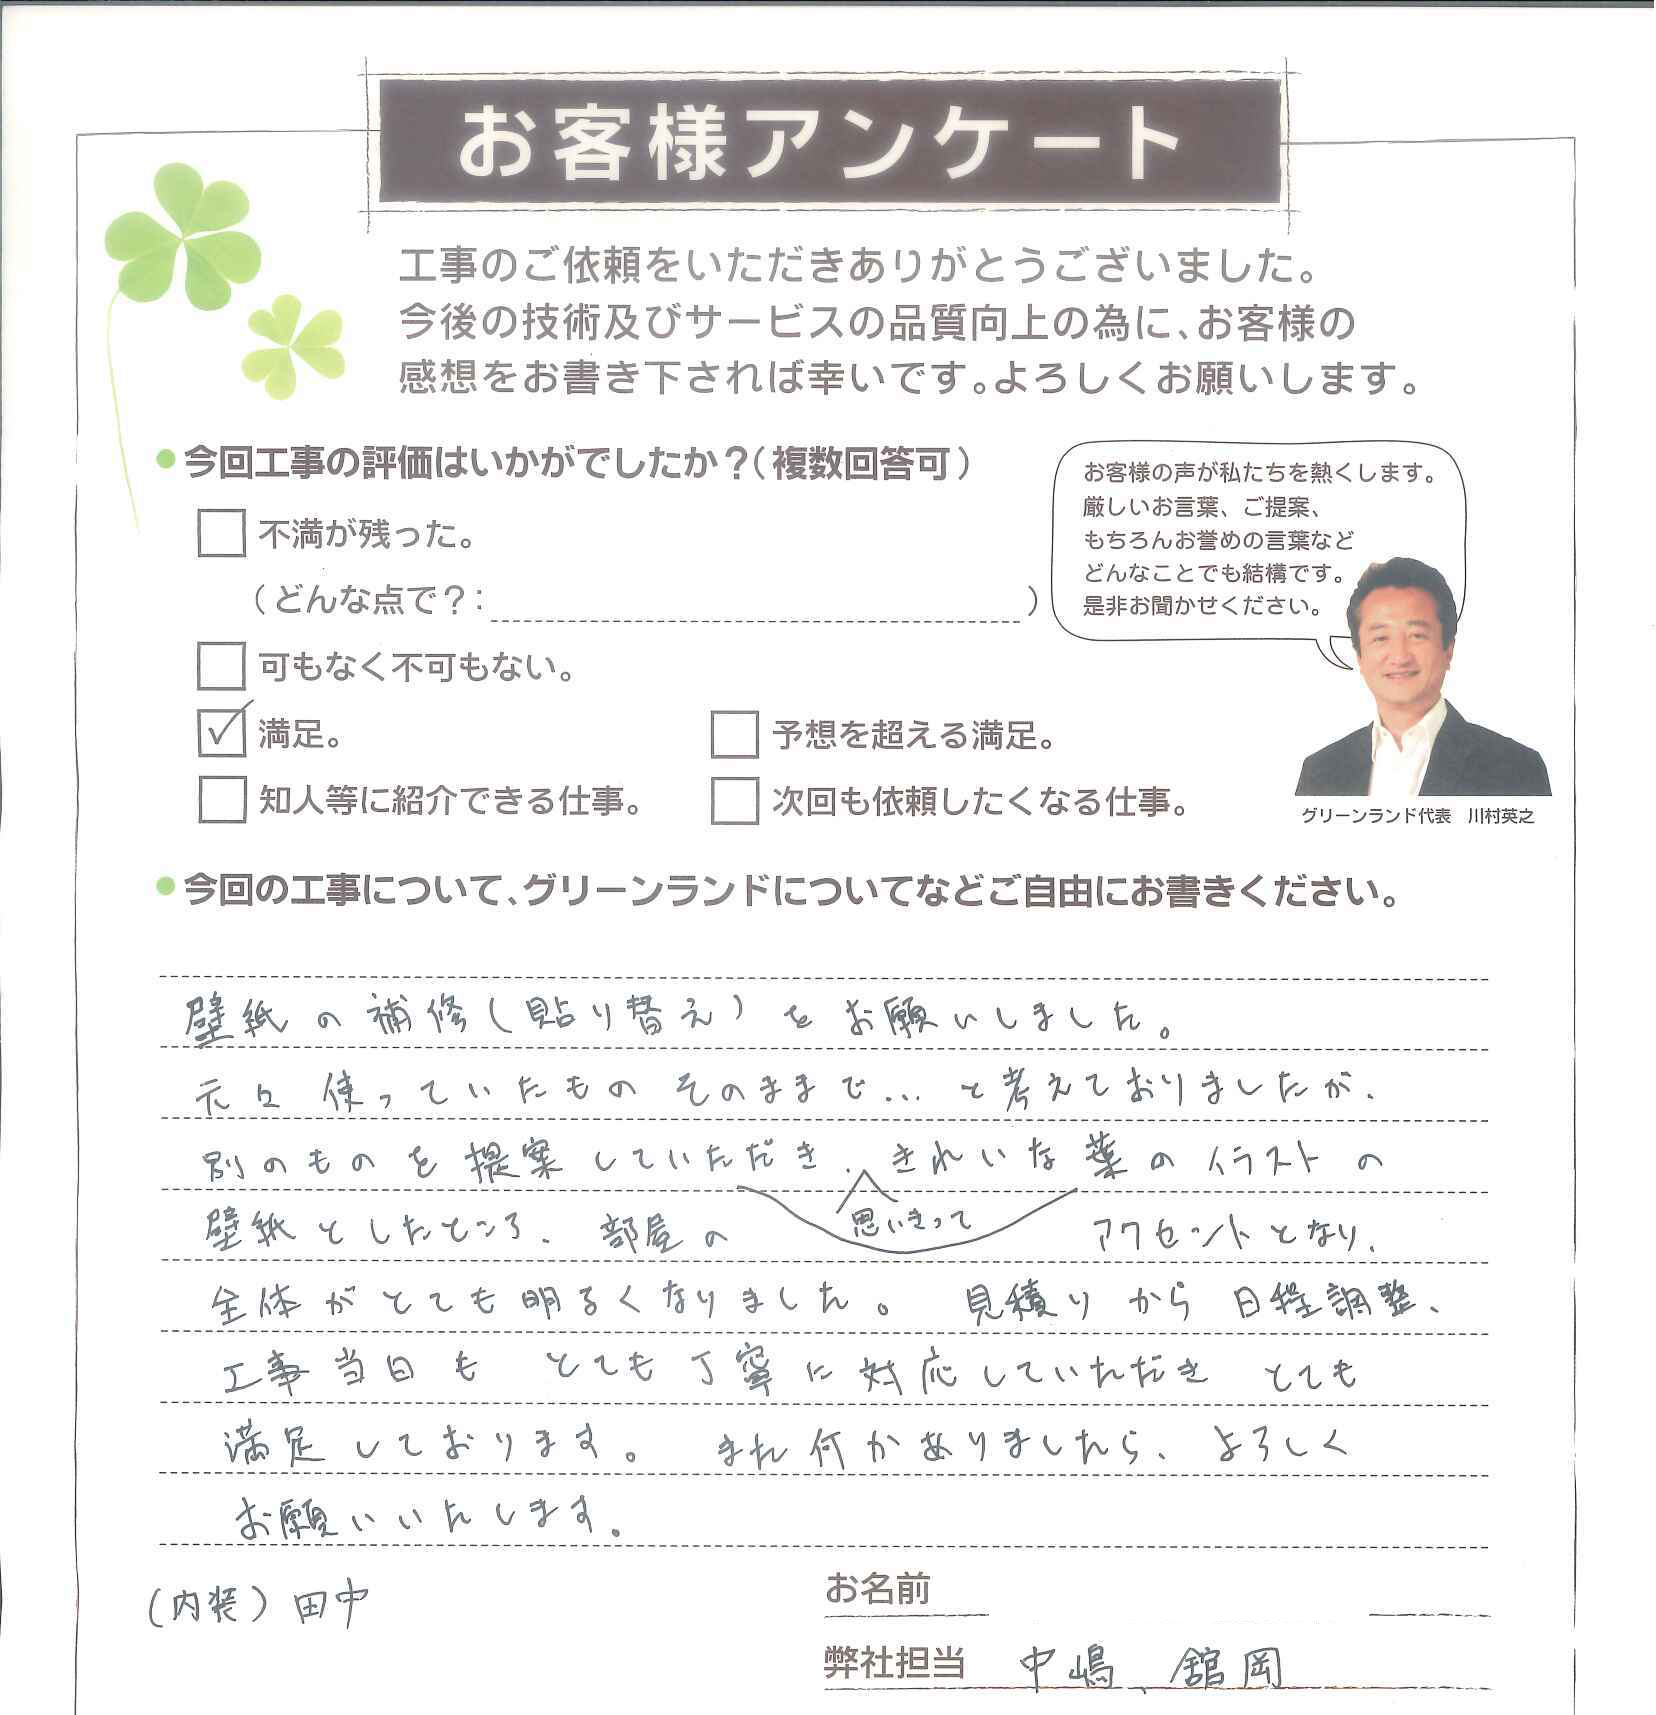 お客様アンケート
工事のご依頼をいただきありがとうございました。
今後の技術及びサービスの品質向上の為に、お客様の
感想をお書き下されば幸いです。よろしくお願いします。
● 今回工事の評価はいかがでしたか？（複数回答可）
□ 不満が残った。
（どんな点で？：　　　　）
□ 可もなく不可もない。
☑ 満足。　□ 予想を超える満足。
□ 知人等に紹介できる仕事。　□ 次回も依頼したくなる仕事。
お客様の声が私たちを熱くします。
厳しいお言葉、ご提案、
もちろんお誉めの言葉など
どんなことでも結構です。
是非お聞かせください。
グリーンランド代表　川村英之
● 今回の工事について、グリーンランドについてなどご自由にお書きください。
壁紙の補修(貼り替え)をお願いしました。
元々使っていたものそのままで…と考えておりましたが、
別のものを提案していただき、きれいな葉のイラストの
思いきって
壁紙としたところ、部屋の アクセントとなり、
全体がとても明るくなりました。見積りから日程調整、
工事当日も とても丁寧に対応していただき とても
満足しております。また何かありましたら、よろしく
お願いいたします。
(内装) 田中
お名前
弊社担当　中嶋、舘岡